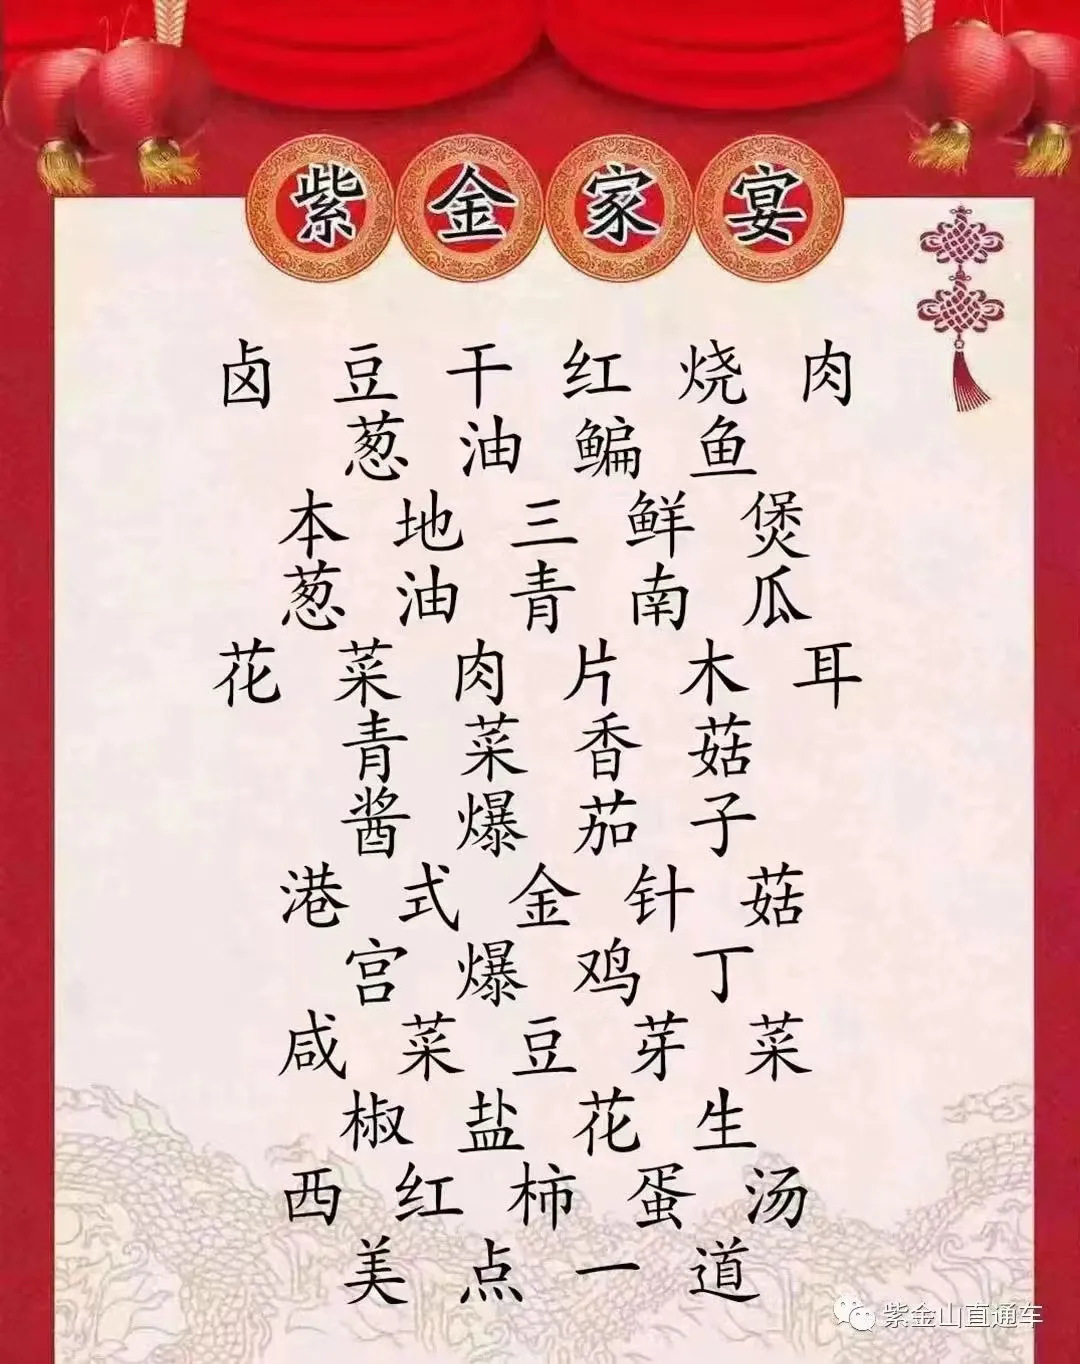 紫金家宴
卤豆干红烧肉
葱油鳊鱼
本地三鲜煲
葱油青南瓜
花菜肉片木耳
青菜香菇
酱爆茄子
港式金针菇
宫爆鸡丁
咸菜豆芽菜
椒盐花生
西红柿蛋汤
美点一道
紫金山直通车